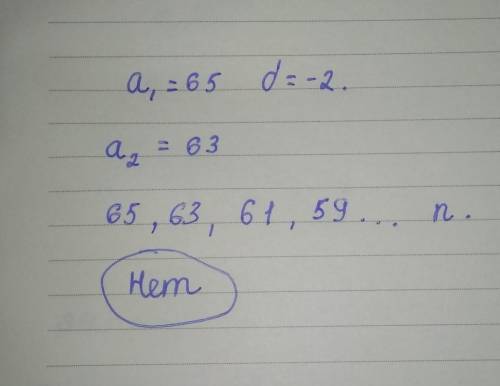 a₁ = 65 d = -2.
a₂ = 63
65, 63, 61, 59... n.
Нет